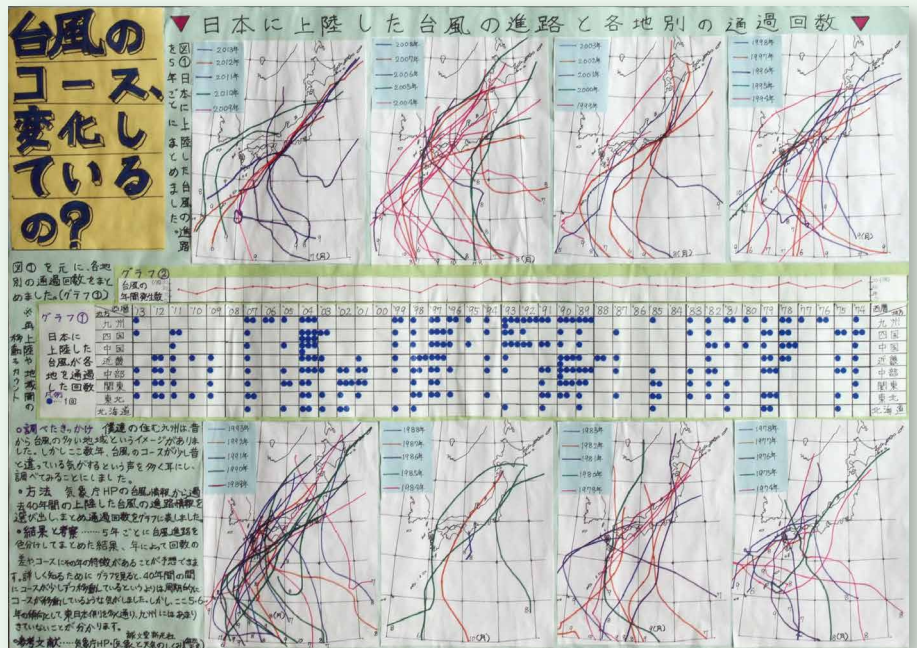 台風の
コース、
変化し
ている
の?
▼日本に上陸した台風の進路と各地別の通過回数▼
図①日本に上陸した台風の進路
を5年ごとにまとめました。
2013年
2012年
2011年
2010年
2009年
2008年
2007年
2006年
2005年
2004年
2003年
2002年
2001年
2000年
1999年
1998年
1997年
1996年
1995年
1994年
図①を元に、各地
別の通過回数をまと
めました。(グラフ①)
グラフ②
台風の
年間発生数
グラフ①
日本に
上陸した
台風が各
地を通過
した回数
●…1回
西暦 '13 '12 '11 '10 '09 '08 '07 '06 '05 '04 '03 '02 '01 '00 '99 '98 '97 '96 '95 '94 '93 '92 '91 '90 '89 '88 '87 '86 '85 '84 '83 '82 '81 '80 '79 '78 '77 '76 '75 '74 西暦
九州
四国
中国
近畿
中部
関東
東北
北海道
九州
四国
中国
近畿
中部
関東
東北
北海道
○調べたきっかけ 僕達の住む九州は、昔
から台風の多い地域というイメージがありま
した。しかしここ数年、台風のコースが少し昔
と違っている気がするという声を多く耳にし、
調べてみることにしました。
•方法 気象庁HPの台風情報から過
去40年間の上陸した台風の進路情報を
選び出し、まとめ通過回数をグラフに表しました。
•結果と考察……5年ごとに台風進路を
色分けしてまとめた結果、年によって回数の
差やコースにその年の特徴があることが予想できま
す。詳しく知るためにグラフを見ると、40年間の間
にコースが少しずつ移動しているというよりは周期的に
コースが移動しているような気がしました。しかし、ここ5-6
年の傾向として東日本側を多く通り、九州にはあまり
きていないことが分かります。
1993年
1992年
1991年
1990年
1989年
1988年
1987年
1986年
1985年
1984年
1983年
1982年
1981年
1980年
1979年
1978年
1977年
1976年
1975年
1974年
誠文堂新光社